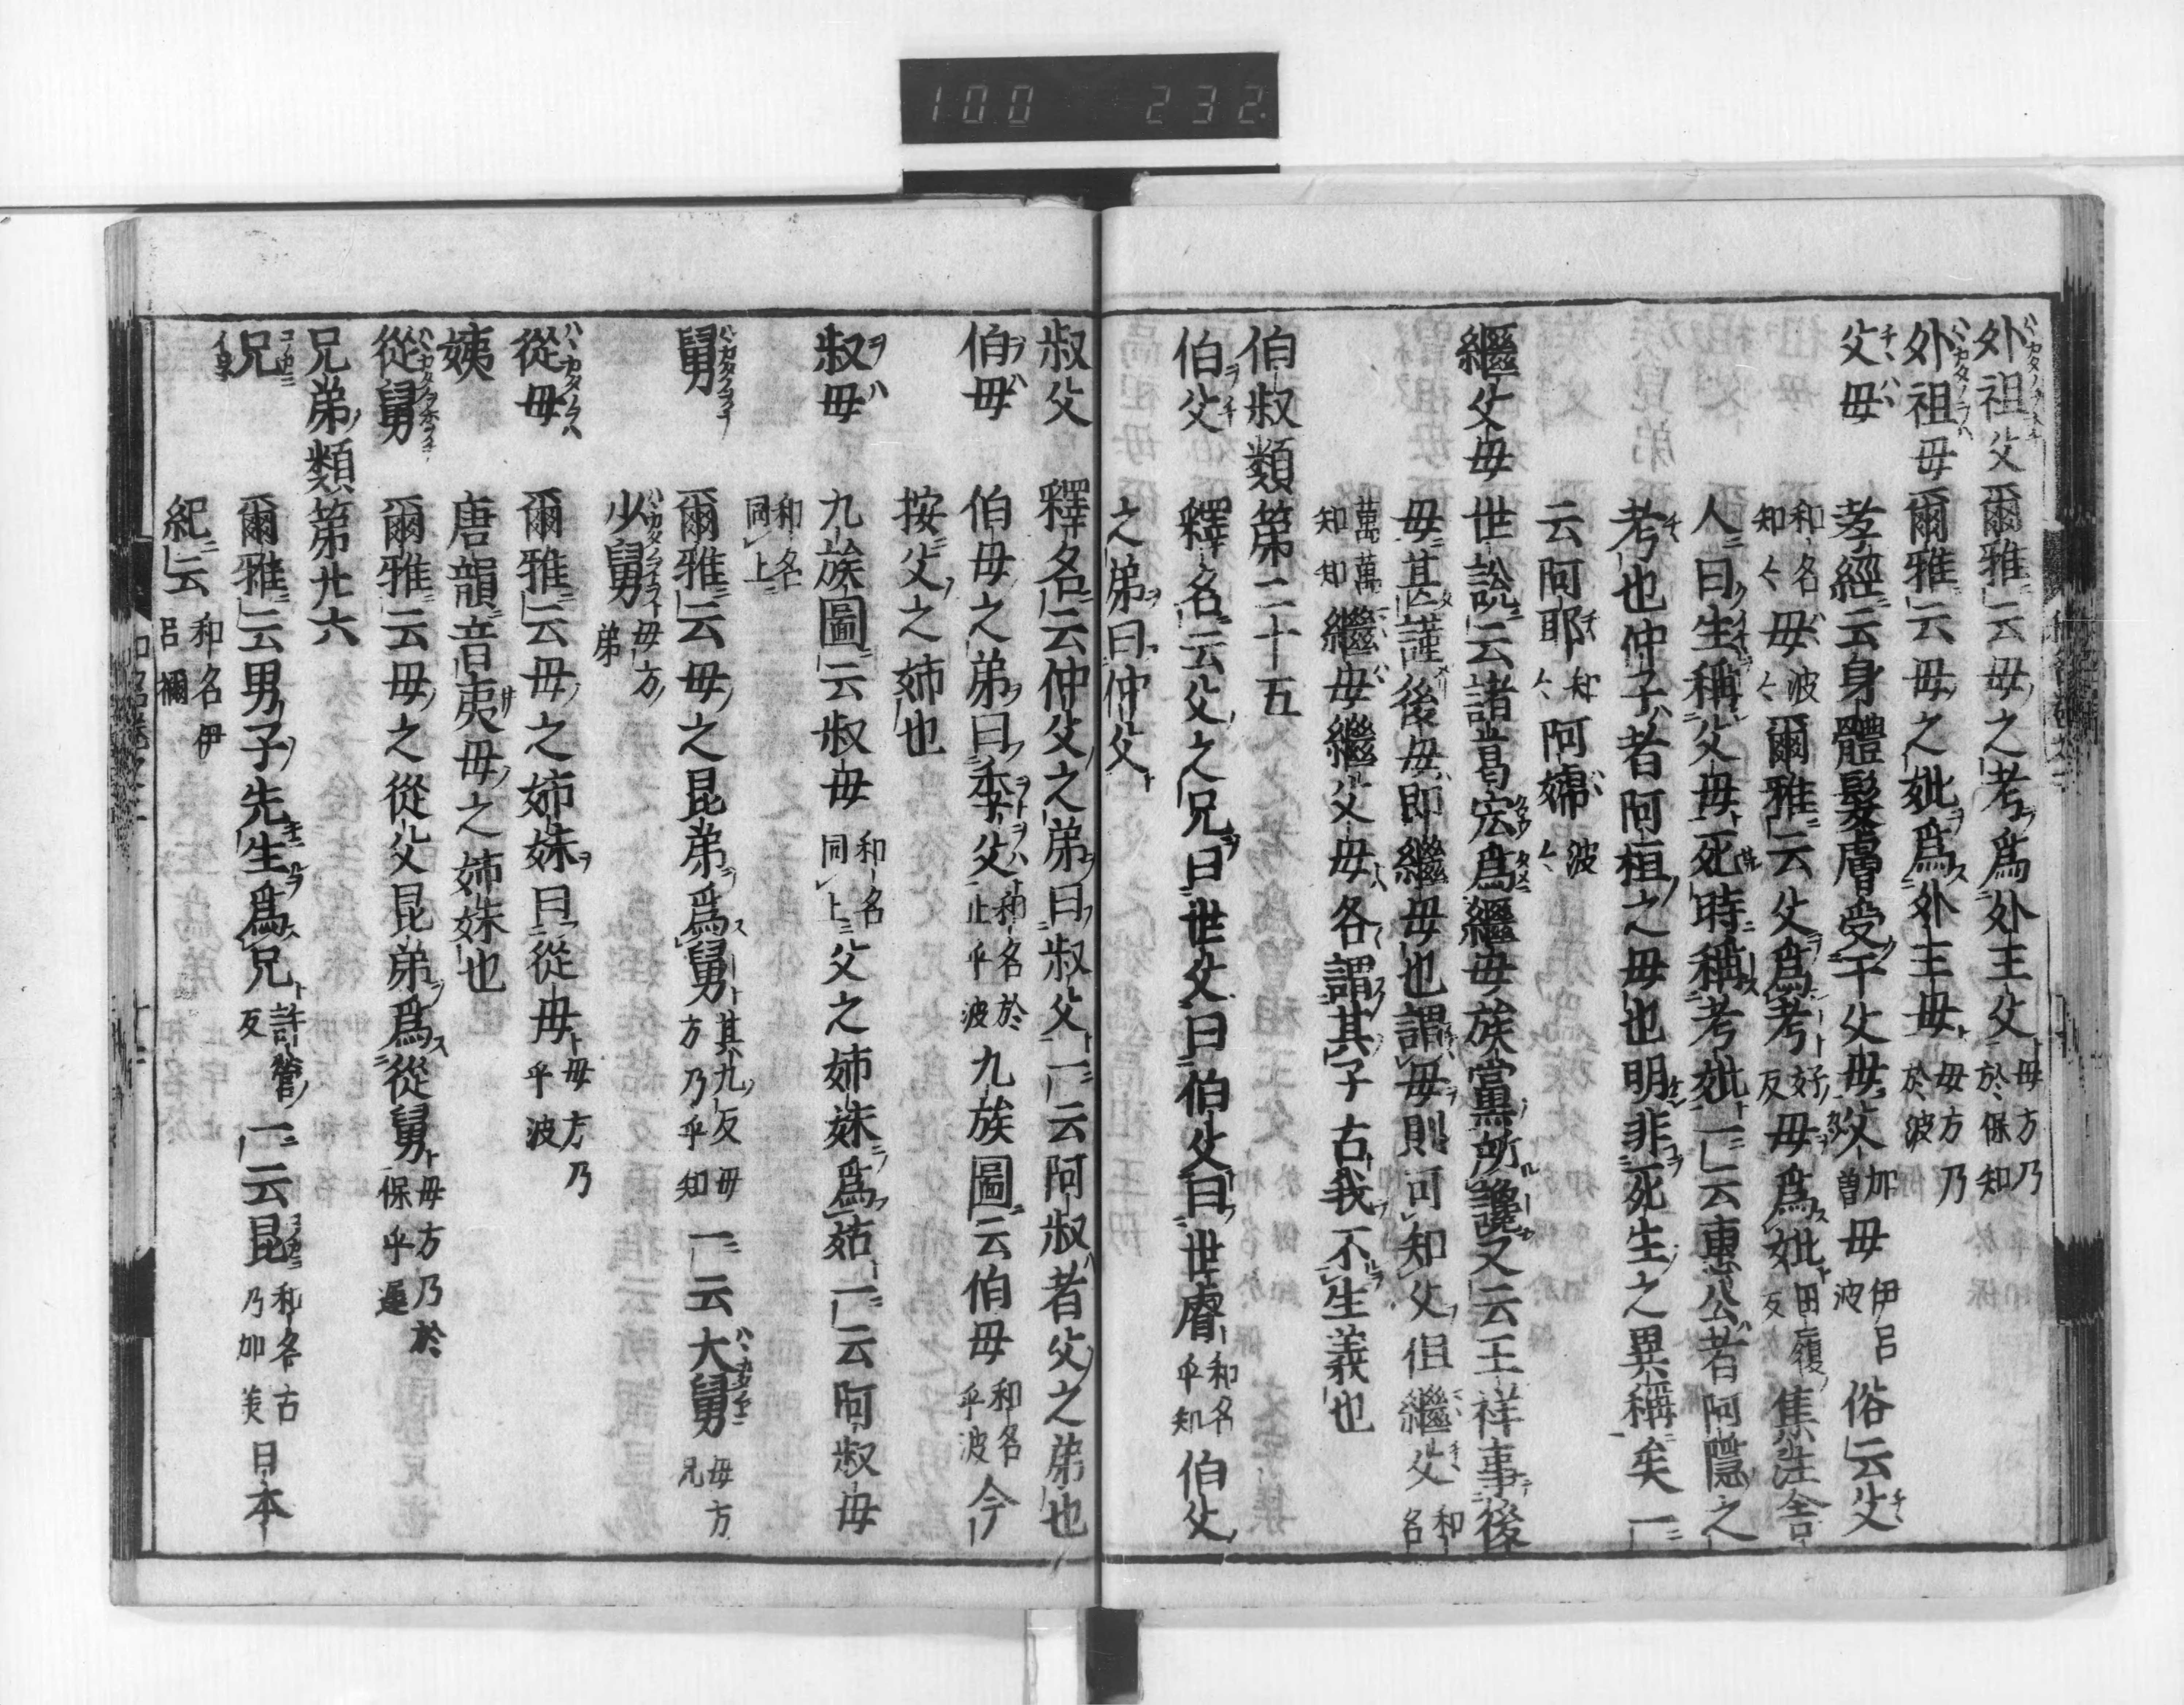 100 232
外祖父 爾雅云母之考爲外王父 母方乃於保知
外祖母 爾雅云母之妣爲外王母 母方乃於波
父母 孝經云身體髮膚受于父母父 加曽 母 伊呂波 俗云父
和名知々 母 波々 爾雅云父爲考 反 母爲妣 反 集注舎
人曰生稱父母死時稱考妣一云惠公者阿隱之
考也仲子者阿桓之母也明非死生之異稱矣一
云阿耶 阿㜷 波々
繼父母 世說云諸昌宏爲繼母族黨所讒又云王祥事後
母甚謹後母即繼母也謂母則可知父但繼父 和名
萬萬知知 繼母繼父母各謂其子古我不生義也
伯叔類第二十五
伯父 釋名云父之兄曰世父曰伯父曰世膚 和名乎知 伯父
之弟曰仲父
叔父 釋名云仲父之弟曰叔父一云阿叔者父之弟也
伯母 伯母之弟曰季父 和名於止乎波 九族圖云伯母 和名乎波 今
按父之姉也
叔母 九族圖云叔母 和名同上 父之姉妹爲姑一云阿叔母
和名同上
舅 爾雅云母之昆弟爲舅 其九反母方乃乎知 一云大舅 母方兄
少舅 母方弟
從母 爾雅云母之姉妹曰從母 母方乃乎波
姨 唐韻音夷母之姉妹也
從舅 爾雅云母之從父昆弟爲從舅 母方乃於保乎遲
兄弟類第廿六
兄 爾雅云男子先生爲兄 反 一云昆 和名古乃加美 日本
紀云 和名伊呂禰